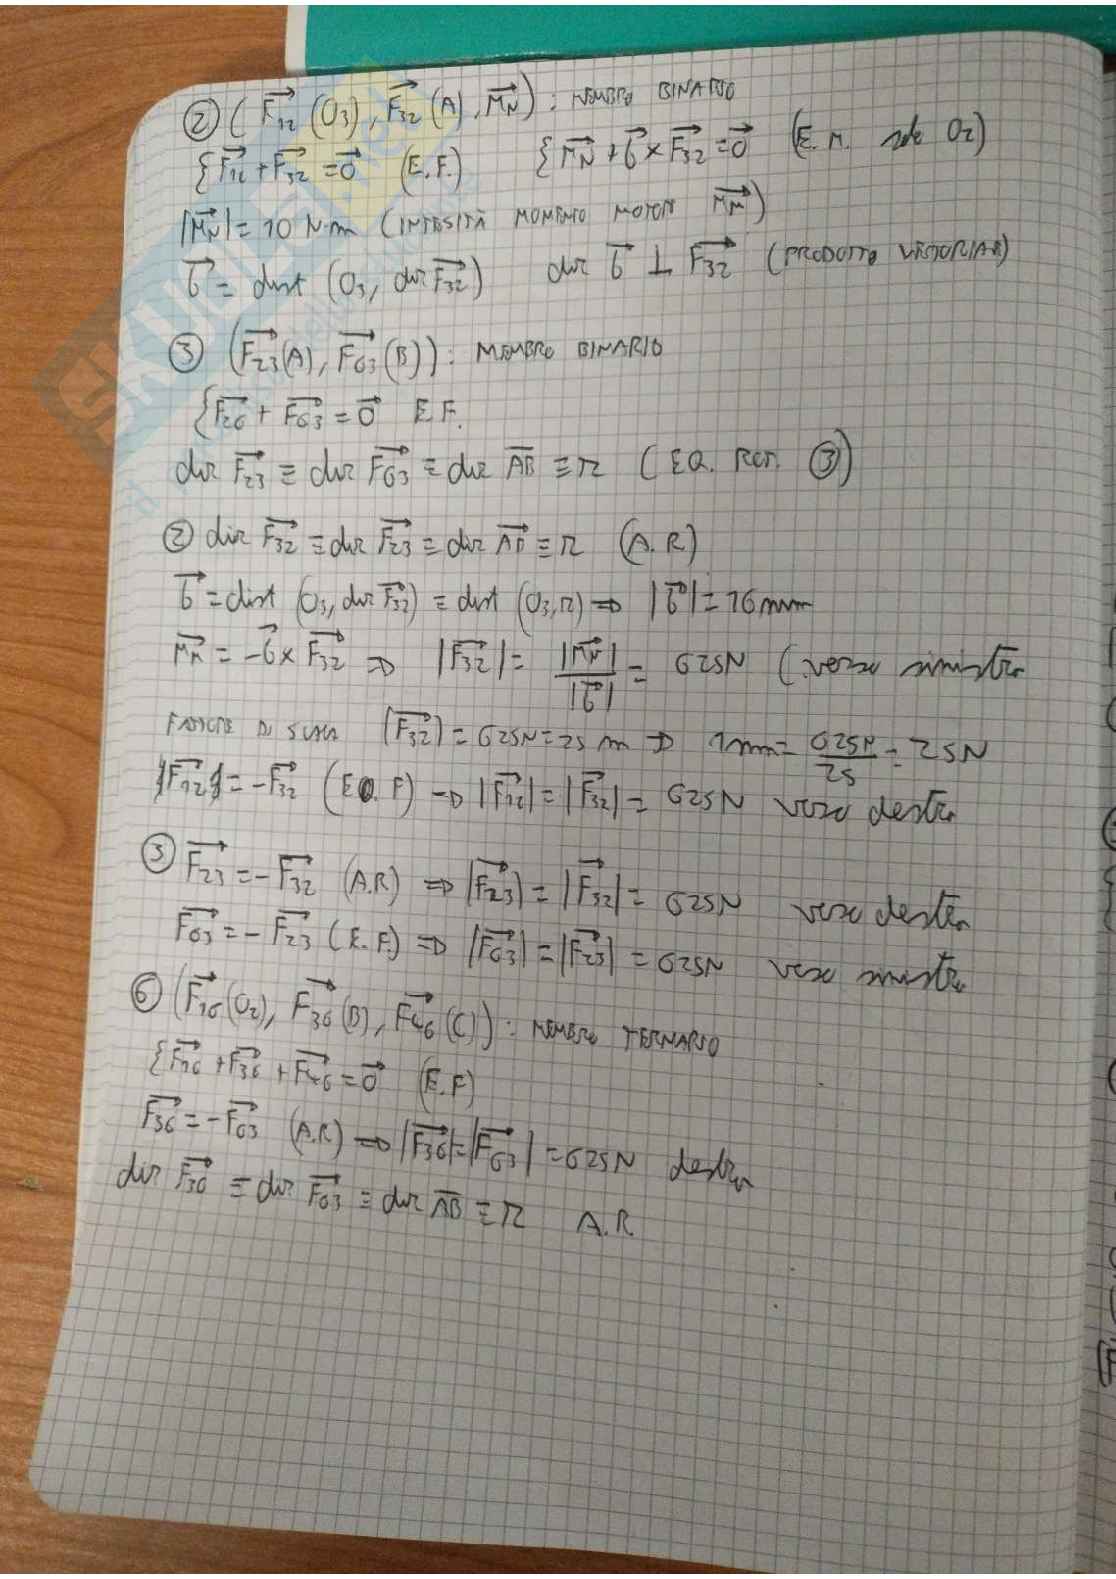 ② (F₁₂ (O₃), F₃₂ (A), M_M) : MEMBRO BINARIO
{F₁₂ + F₃₂ = 0 (E.F.) {M_M + b × F₃₂ = 0 (E. M. polo O₂)
|M_M| = 10 N·m (INTESITÀ MOMENTO MOTOR M_M)
b = dist (O₃, dir F₃₂) dir b ⊥ F₃₂ (PRODOTTO VETTORIALE)
③ (F₂₃(A), F₆₃(B)) : MEMBRO BINARIO
{F₂₆ + F₆₃ = 0 E.F.
dir F₂₃ ≡ dir F₆₃ ≡ dir AB ≡ r (EQ. ROT. ③)
② dir F₃₂ ≡ dir F₂₃ ≡ dir AB ≡ r (A.R)
b = dist (O₃, dir F₃₂) ≡ dist (O₃, r) ⇒ |b| = 16 mm
M_M = -b × F₃₂ ⇒ |F₃₂| = |M_M| / |b| = 625N (verso sinistra
FATTORE DI SCALA |F₃₂| = 625N = 25 m ⇒ 1mm = 625N / 25 = 25N
{F₁₂} = -F₃₂ (EQ. F) → |F₁₂| = |F₃₂| = 625N verso destra
③ F₂₃ = -F₃₂ (A.R) ⇒ |F₂₃| = |F₃₂| = 625N verso destra
F₆₃ = -F₂₃ (E.F.) ⇒ |F₆₃| = |F₂₃| = 625N verso sinistra
⑥ (F₁₆(O₂), F₃₆(B), F₄₆(C)) : MEMBRO TERNARIO
{F₁₆ + F₃₆ + F₄₆ = 0 (E.F)
F₃₆ = -F₆₃ (A.R) → |F₃₆| = |F₆₃| = 625N destra
dir F₃₆ ≡ dir F₆₃ ≡ dir AB ≡ r A.R